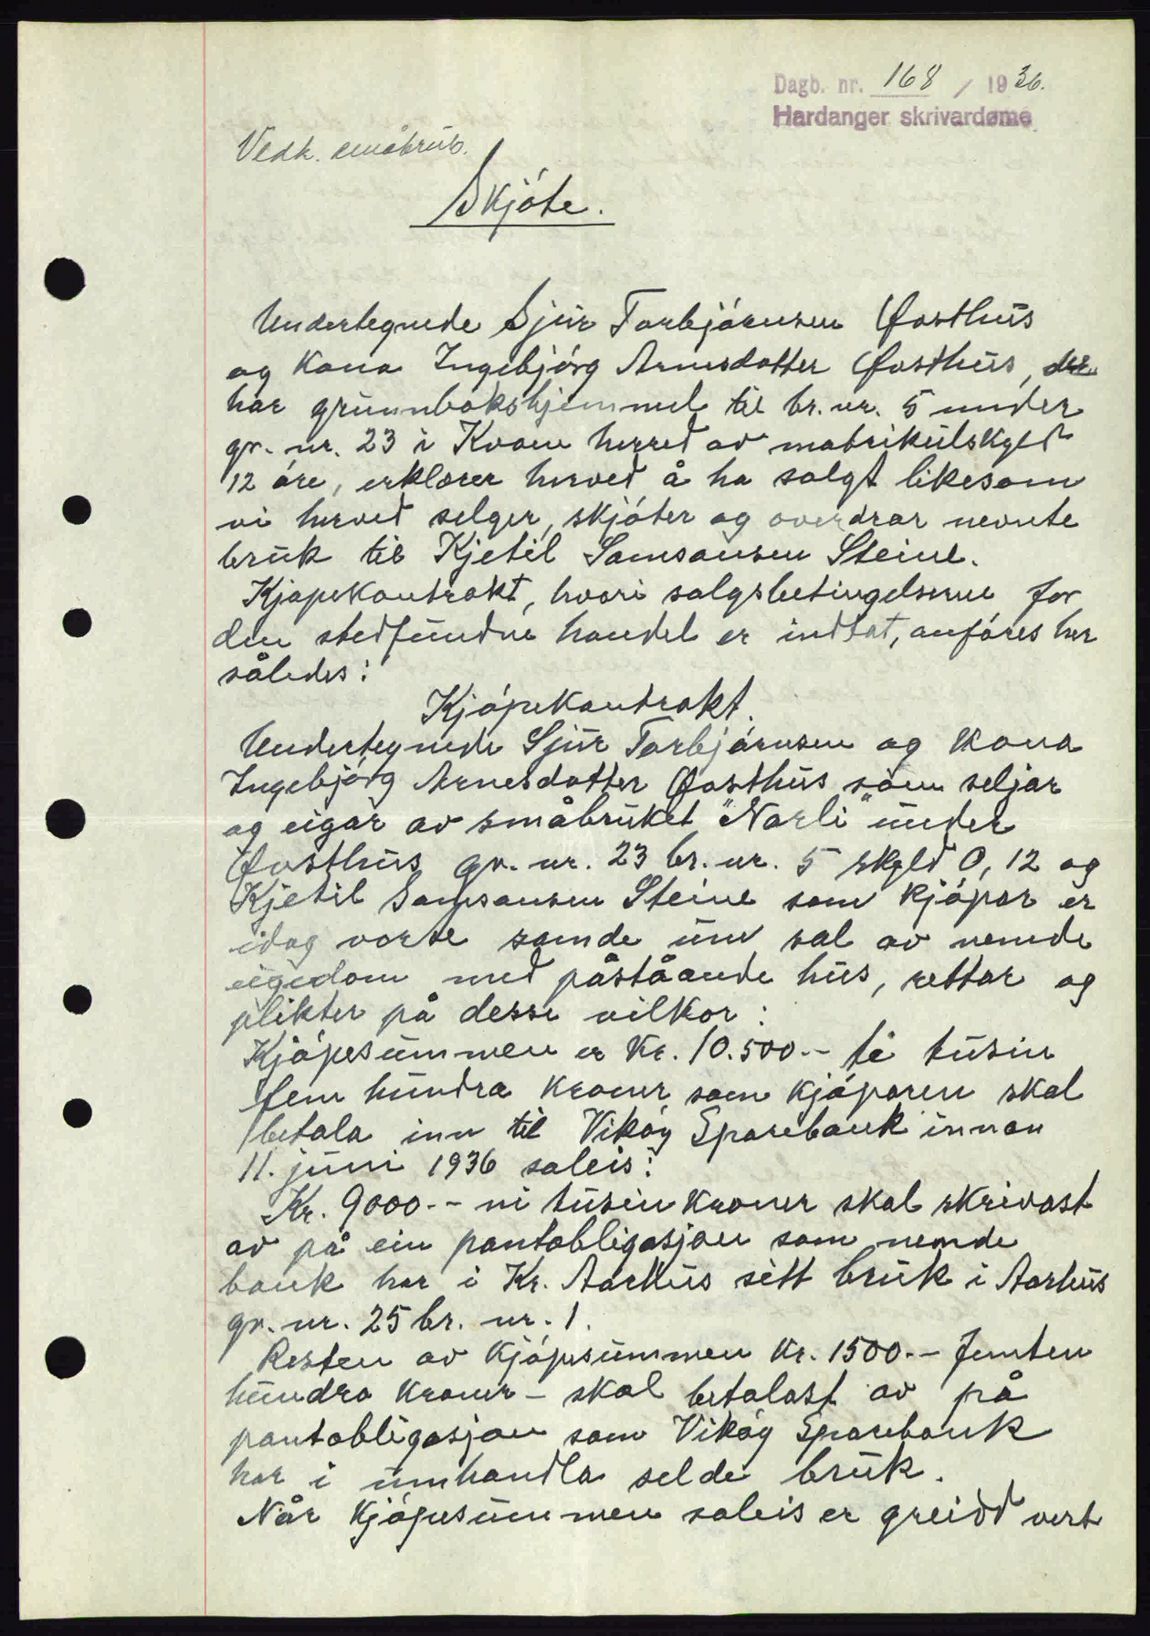 Dagb. nr. 168 / 1936.
Hardanger skrivardøme
Vedk. småbruk.
Skjöte.
Undertegnede Sjur Torbjörnsen Øvsthus
og kona Ingebjörg Arnesdotter Øvsthus,
har grunnbokshjemmel til br. nr. 5 under
gr. nr. 23 i Kvam herred av matrikulskyld
12 öre, erklærer herved å ha solgt likesom
vi herved selger, skjöter og overdrar nevnte
bruk til Kjetil Samsonsen Steine.
Kjöpekontrakt, hvori salgsbetingelsene for
den stedfundne handel er indtat, anföres her
således:
Kjöpekontrakt.
Undertegnede Sjur Torbjörnsen og kona
Ingebjörg Arnesdotter Øvsthus som seljar
og eigar av småbruket "Norli" under
Øvsthus gr. nr. 23 br. nr. 5 skyld 0,12 og
Kjetil Samsonsen Steine som kjöpar er
idag vorte samde um sal av nemde
eigedom med påståande hus, rettar og
plikter på desse vilkor:
Kjöpesummen er Kr. 10.500.- ti tusin
fem hundra kroner som kjöparen skal
betala inn til Viköy Sparebank innan
11. juni 1936 soleis:
Kr. 9000.- ni tusin kroner skal skrivast
av på ein pantobligasjon som nemde
bank har i Kr. Aarhus sitt bruk i Aarhus
gr. nr. 25 br. nr. 1.
Resten av kjöpesummen kr. 1500.- femten
hundra kroner - skal betalast av på
pantobligasjon som Viköy Sparebank
har i umhandla selde bruk.
Når kjöpesummen soleis er greidd vert